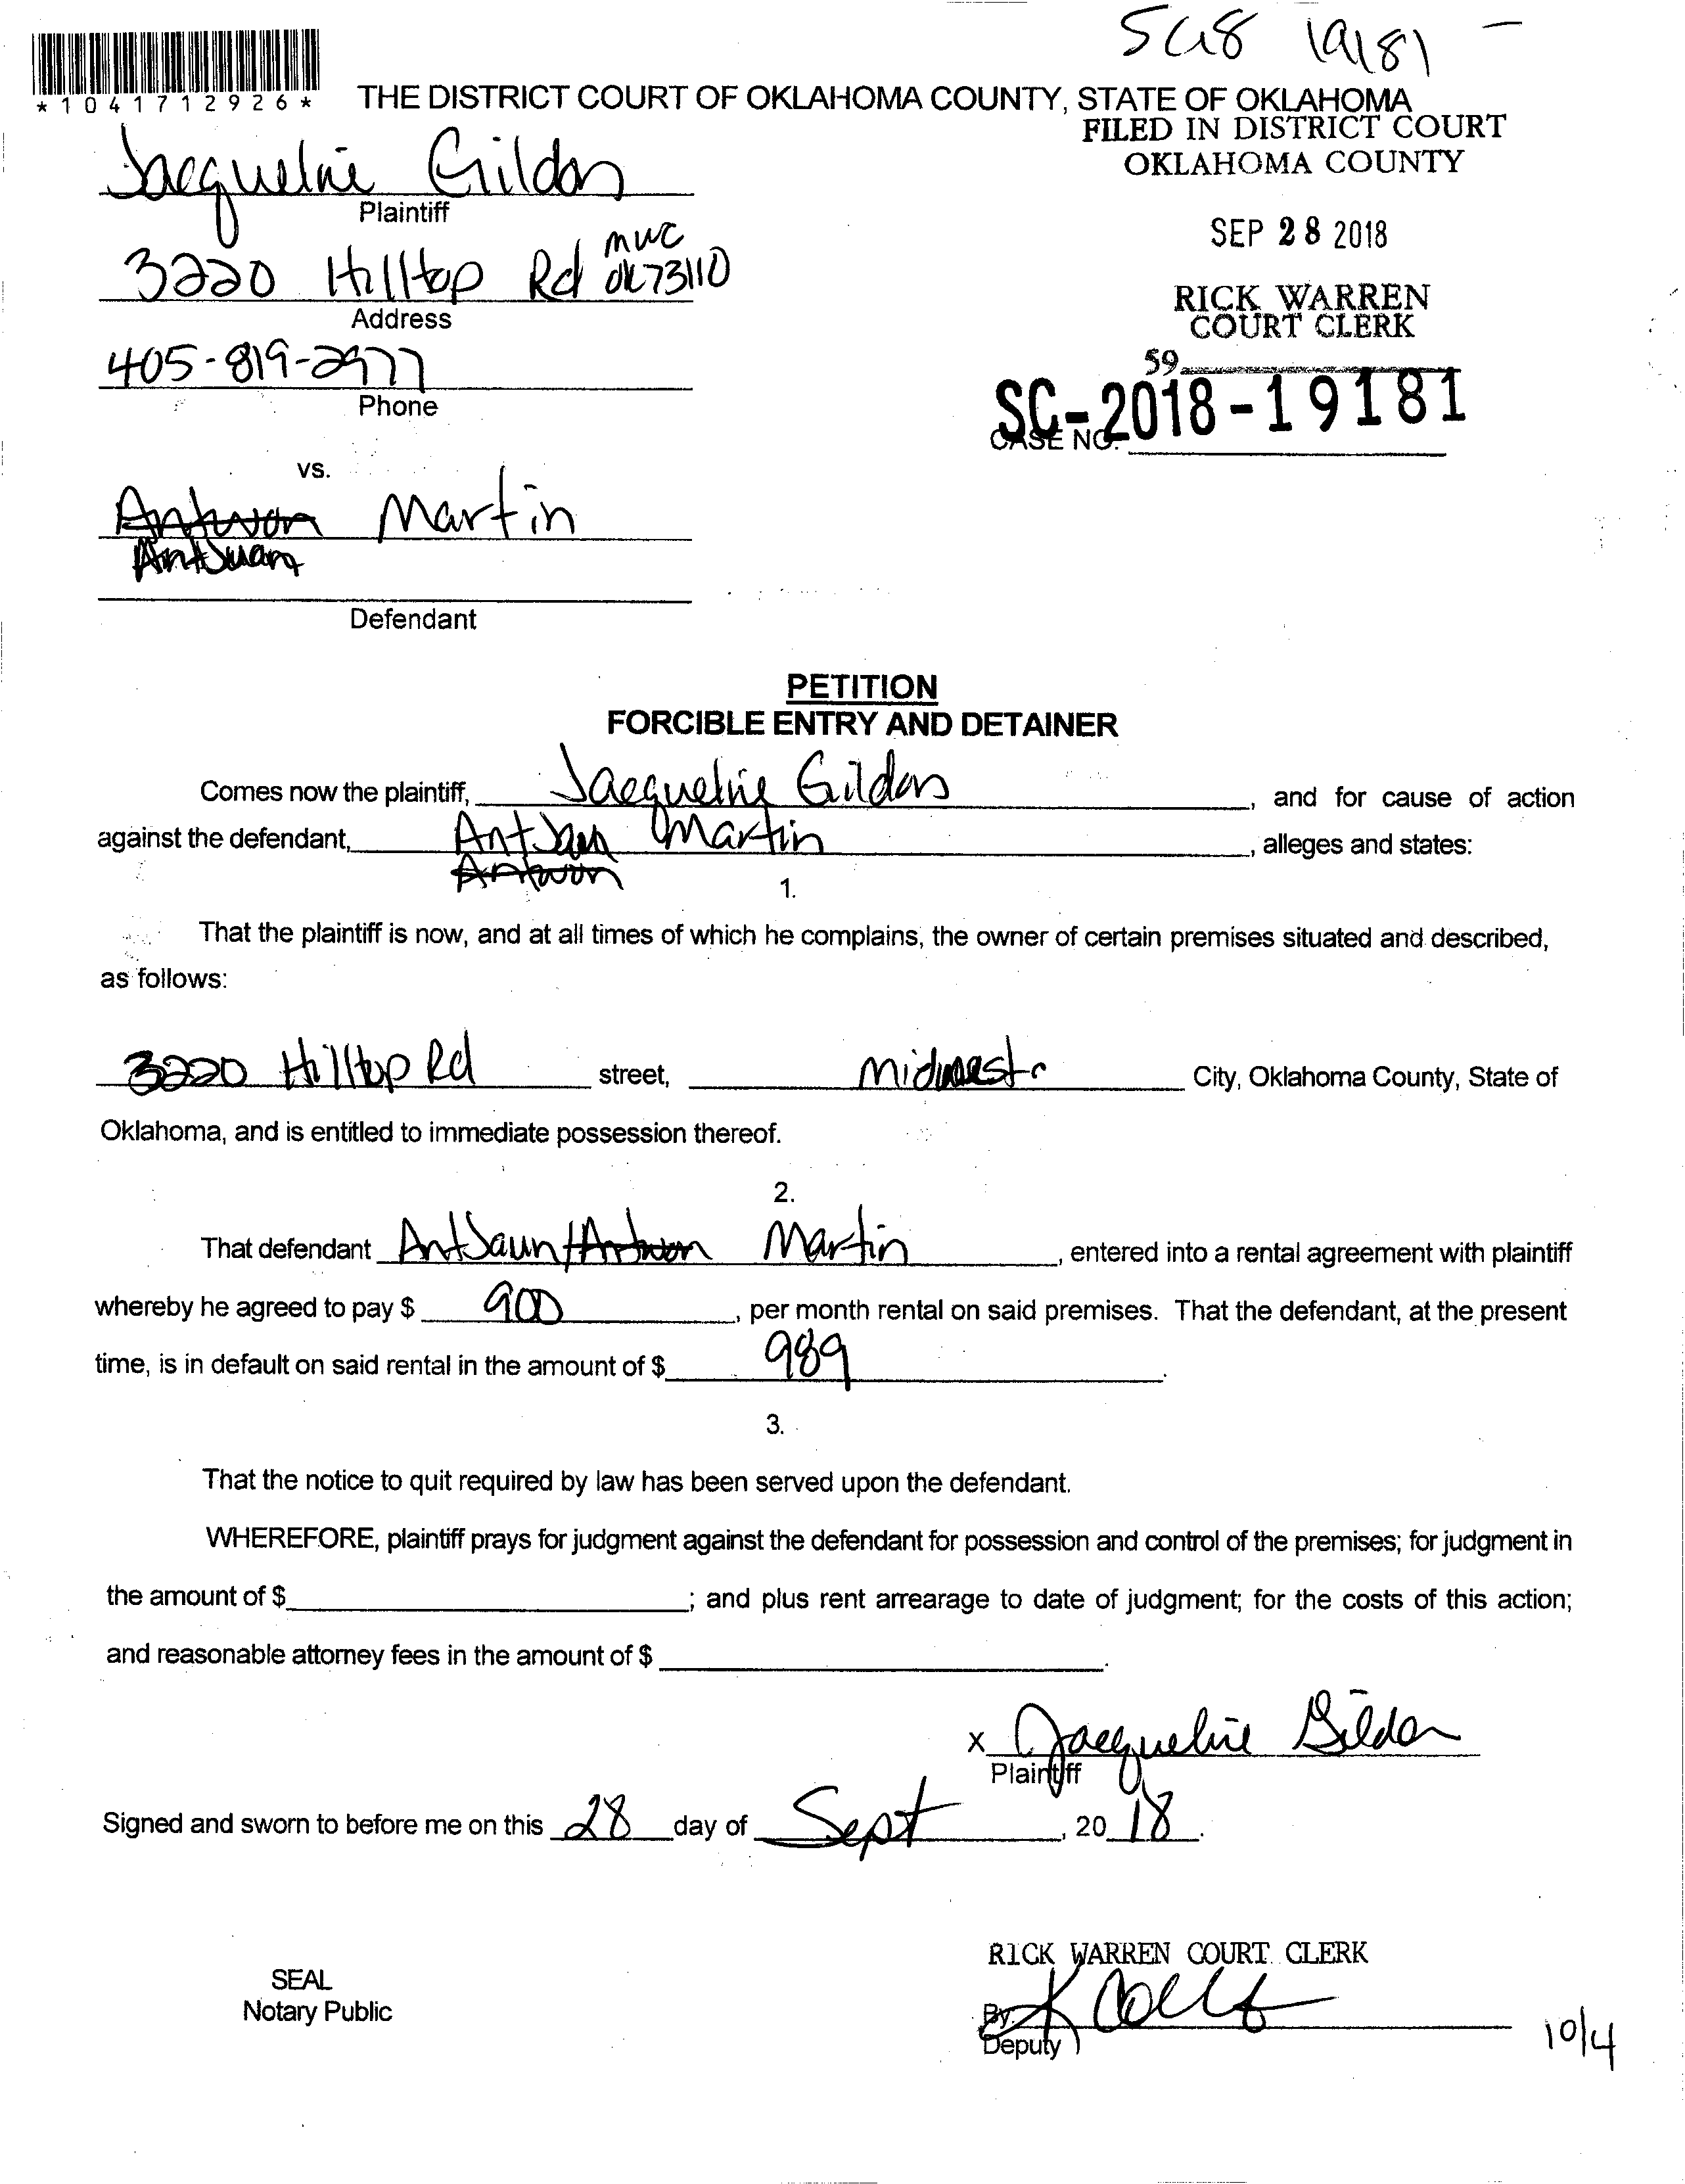 SC18 19181 -
*1041712926*
THE DISTRICT COURT OF OKLAHOMA COUNTY, STATE OF OKLAHOMA
FILED IN DISTRICT COURT
OKLAHOMA COUNTY
Jacqueline Gildon
Plaintiff
SEP 28 2018
3220 Hilltop Rd mwc ok 73110
Address
RICK WARREN
COURT CLERK
405-819-2977
Phone
59
SC-2018-19181
CASE NO.
vs.
Antwon Martin
AntJuan
Defendant
PETITION
FORCIBLE ENTRY AND DETAINER
Comes now the plaintiff, Jacqueline Gildon, and for cause of action
against the defendant, AntJaun Martin, alleges and states:
Antwon
1.
That the plaintiff is now, and at all times of which he complains, the owner of certain premises situated and described,
as follows:
3220 Hilltop Rd street, Midwest City, Oklahoma County, State of
Oklahoma, and is entitled to immediate possession thereof.
2.
That defendant AntJaun/Antwon Martin, entered into a rental agreement with plaintiff
whereby he agreed to pay $ 900, per month rental on said premises. That the defendant, at the present
time, is in default on said rental in the amount of $ 989.
3.
That the notice to quit required by law has been served upon the defendant.
WHEREFORE, plaintiff prays for judgment against the defendant for possession and control of the premises; for judgment in
the amount of $; and plus rent arrearage to date of judgment; for the costs of this action;
and reasonable attorney fees in the amount of $.
x Jacqueline Gildon
Plaintiff
Signed and sworn to before me on this 28 day of Sept, 20 18.
RICK WARREN COURT CLERK
SEAL
Notary Public
By:
Deputy
10/4